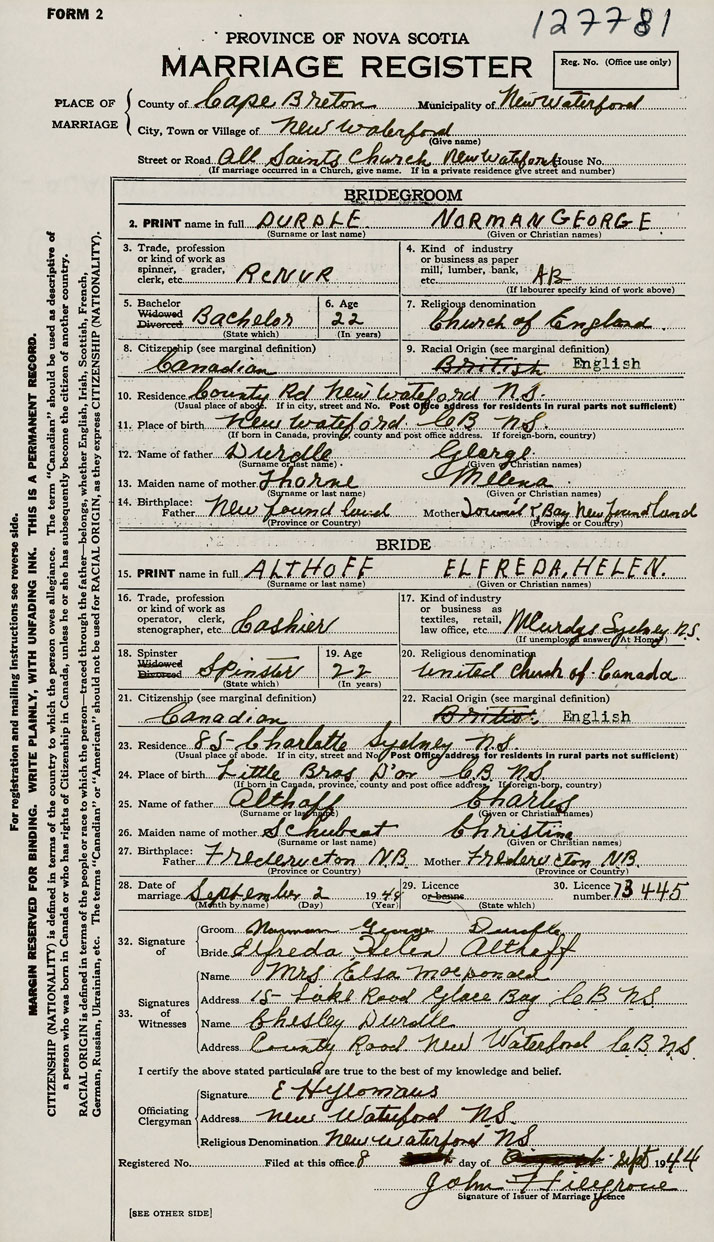 FORM 2
127781
PROVINCE OF NOVA SCOTIA
MARRIAGE REGISTER
Reg. No. (Office use only)
PLACE OF MARRIAGE
County of Cape Breton Municipality of New Waterford
City, Town or Village of New Waterford
(Give name)
Street or Road All Saints Church New Waterford House No.
(If marriage occurred in a Church, give name. If in a private residence give street and number)
BRIDEGROOM
2. PRINT name in full DURDLE NORMAN GEORGE
(Surname or last name) (Given or Christian names)
3. Trade, profession or kind of work as spinner, grader, clerk, etc. RCNVR
4. Kind of industry or business as paper mill, lumber, bank, etc. AB
(If labourer specify kind of work above)
5. Bachelor Widowed Divorced Bachelor
(State which)
6. Age 22
(In years)
7. Religious denomination Church of England
8. Citizenship (see marginal definition) Canadian
9. Racial Origin (see marginal definition) British English
10. Residence County Rd New Waterford N.S.
(Usual place of abode. If in city, street and No. Post Office address for residents in rural parts not sufficient)
11. Place of birth New Waterford C.B N.S.
(If born in Canada, province, county and post office address. If foreign-born, country)
12. Name of father Durdle George
(Surname or last name) (Given or Christian names)
13. Maiden name of mother Thorne Melena
(Surname or last name) (Given or Christian names)
14. Birthplace: Father Newfoundland Mother Bay Newfoundland
(Province or Country) (Province or Country)
BRIDE
15. PRINT name in full ALTHOFF ELFREDA, HELEN.
(Surname or last name) (Given or Christian names)
16. Trade, profession or kind of work as operator, clerk, stenographer, etc. Cashier
17. Kind of industry or business as textiles, retail, law office, etc. McCurdys Sydney N.S.
(If unemployed answer "At Home")
18. Spinster Widowed Divorced Spinster
(State which)
19. Age 22
(In years)
20. Religious denomination United Church of Canada
21. Citizenship (see marginal definition) Canadian
22. Racial Origin (see marginal definition) British English
23. Residence 85- Charlotte Sydney N.S.
(Usual place of abode. If in city, street and No. Post Office address for residents in rural parts not sufficient)
24. Place of birth Little Bras D'or C.B N.S.
(If born in Canada, province, county and post office address. If foreign-born, country)
25. Name of father Althoff Charles
(Surname or last name) (Given or Christian names)
26. Maiden name of mother Christina
(Surname or last name) (Given or Christian names)
27. Birthplace: Father Fredericton N.B. Mother Fredericton N.B.
(Province or Country) (Province or Country)
28. Date of marriage September 2 1944
(Month by name) (Day) (Year)
29. Licence or banns
(State which)
30. Licence number 73445
32. Signature of
Groom Norman George Durdle
Bride Elfreda Helen Althoff
33. Signatures of Witnesses
Name Mrs Elsa MacDonald
Address 15- Lake Road Glace Bay C.B N.S
Name Chesley Durdle
Address County Road New Waterford C.B. N.S.
I certify the above stated particulars are true to the best of my knowledge and belief.
Officiating Clergyman
Signature
Address New Waterford N.S.
Religious Denomination New Waterford N.S.
Registered No. Filed at this office 8 day of Sept 1944
John
Signature of Issuer of Marriage Licence
[SEE OTHER SIDE]
For registration and mailing instructions see reverse side.
MARGIN RESERVED FOR BINDING. WRITE PLAINLY, WITH UNFADING INK. THIS IS A PERMANENT RECORD.
CITIZENSHIP (NATIONALITY) is defined in terms of the country to which the person owes allegiance. The term "Canadian" should be used as descriptive of
a person who was born in Canada or who has rights of Citizenship in Canada, unless he or she has subsequently become the citizen of another country.
RACIAL ORIGIN is defined in terms of the people or race to which the person—traced through the father—belongs, whether English, Irish, Scottish, French,
German, Russian, Ukrainian, etc. The terms "Canadian" or "American" should not be used for RACIAL ORIGIN, as they express CITIZENSHIP (NATIONALITY).